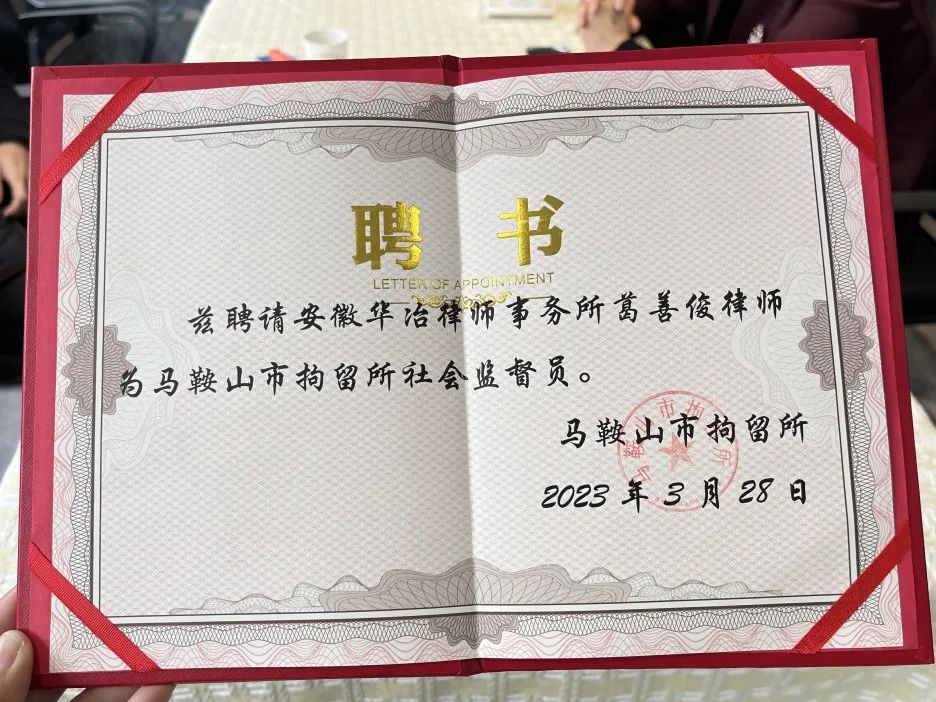 聘 书
LETTER OF APPOINTMENT
兹聘请安徽华冶律师事务所葛善俊律师
为马鞍山市拘留所社会监督员。
马鞍山市拘留所
马鞍山市拘留所
2023 年 3 月 28 日